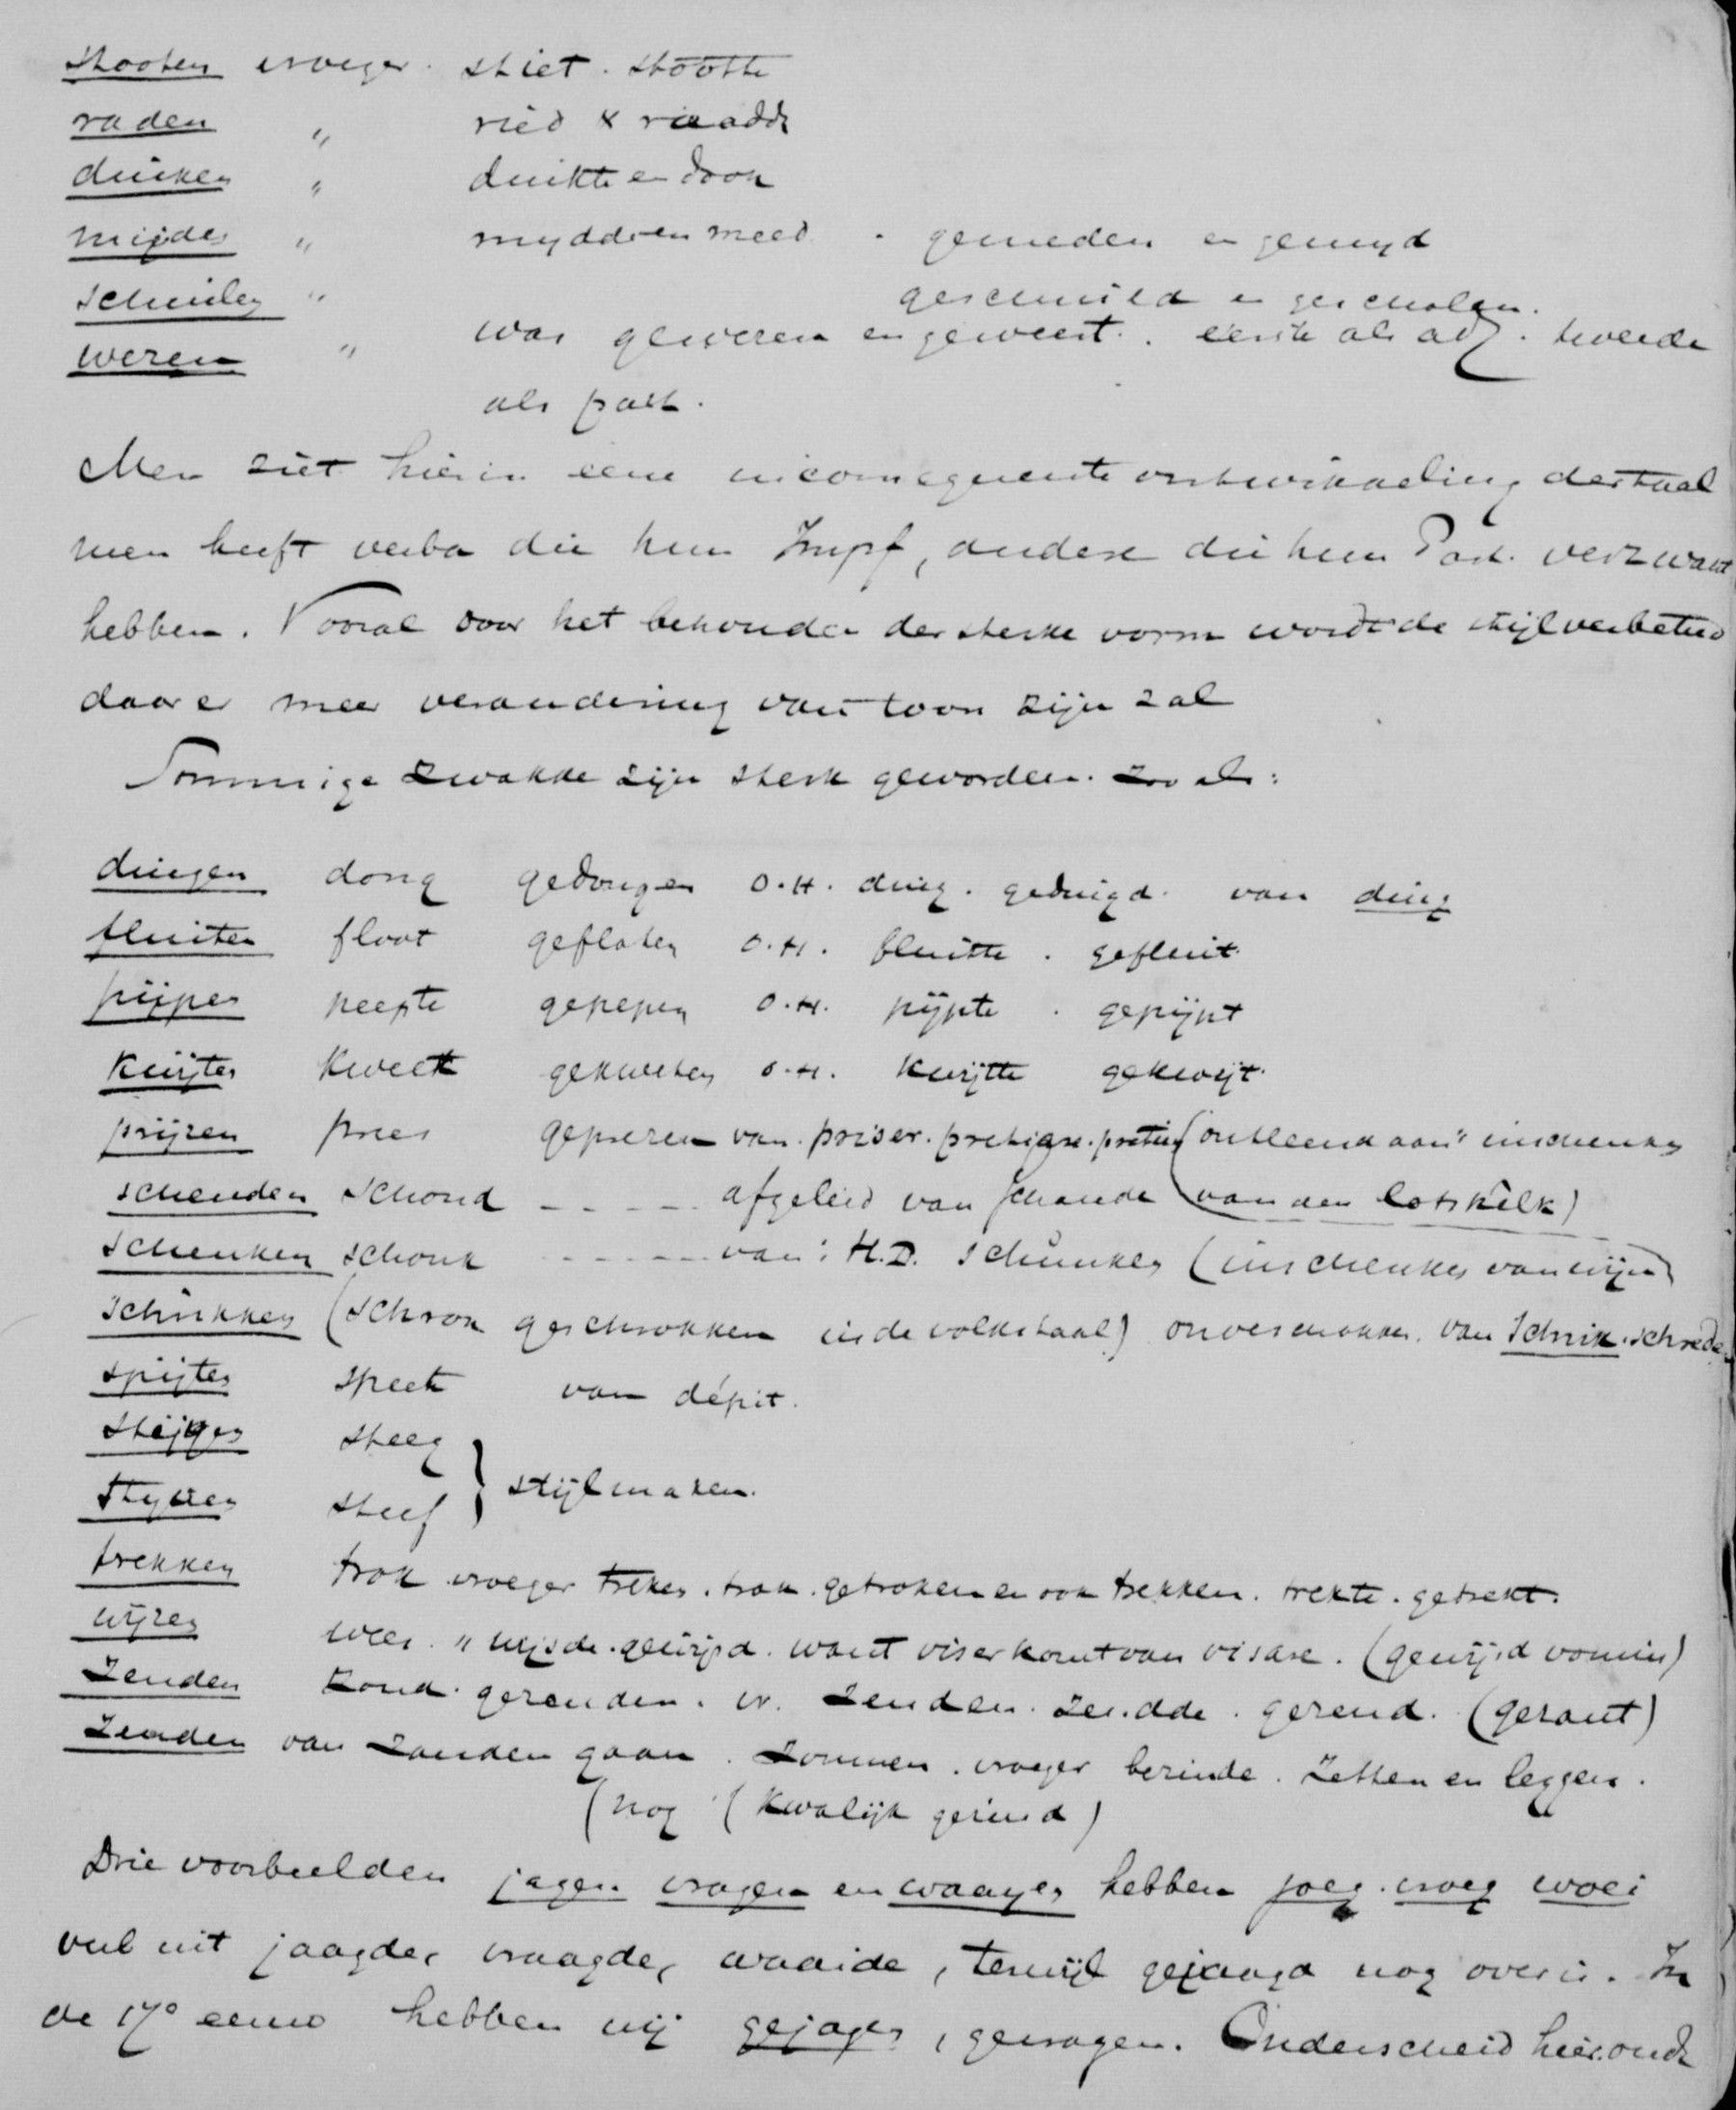 stooten vroeger. stiet. stootte
raden " ried & raadde
duiken " duikte en dook
mijden " mydde en meed. - gemeden en gemyd
schuilen " geschuild en gescholen.
wezen " was gewezen en geweest. eerste als adj. tweede
als part.
Men ziet hierin eene inconsequente ontwikkeling der taal
men heeft verba die hun Impf, andere die hun Part. verzwakt
hebben. Vooral door het behouden der sterke vorm wordt de stijl verbeterd
daar er meer verandering van toon zijn zal
Sommige zwakke zijn sterk geworden. zoo als:
dingen dong gedongen O.H. ding. gedingd. van ding
fluiten floot gefloten O.H. fluitte. gefluit.
pijpen peepte gepepen O.H. pijpte. gepijpt
kwijten kweet gekweten O.H. kwijtte gekwijt.
prijzen prees geprezen van priser. pretiare. (ontleend aan 't inschenken
schenden schond - - - - - afgeleid van schande (van den kelk)
schenken schonk - - - - - van: H.D. schunken (inschenken van wijn)
schrikken (schrok geschrokken in de volkstaal) onverschrokken. van Schrik.
spijten speet van dépit.
stijgen steeg
styven steef } stijf maken.
trekken trok vroeger treken. trak. getroken en ook trekken. trekte. getrekt.
wijzen wees. " wijsde. gewijsd. want viser komt van visare. (gewijsd vonnis)
zenden zond. gezonden. vr. zenden. zendde. gezend. (gezant)
zenden van zanden gaan. zonnen. vroeger bezinde. Zetten en leggen.
(nog (kwalijk gezind)
Drie voorbeelden jagen vragen en waayen hebben joeg. vroeg woei
veel uit jaagde, vraagde, waaide, terwijl gejaagd nog over is. In
de 17e eeuw hebben wij gejagen, gevragen. Onderscheid hier